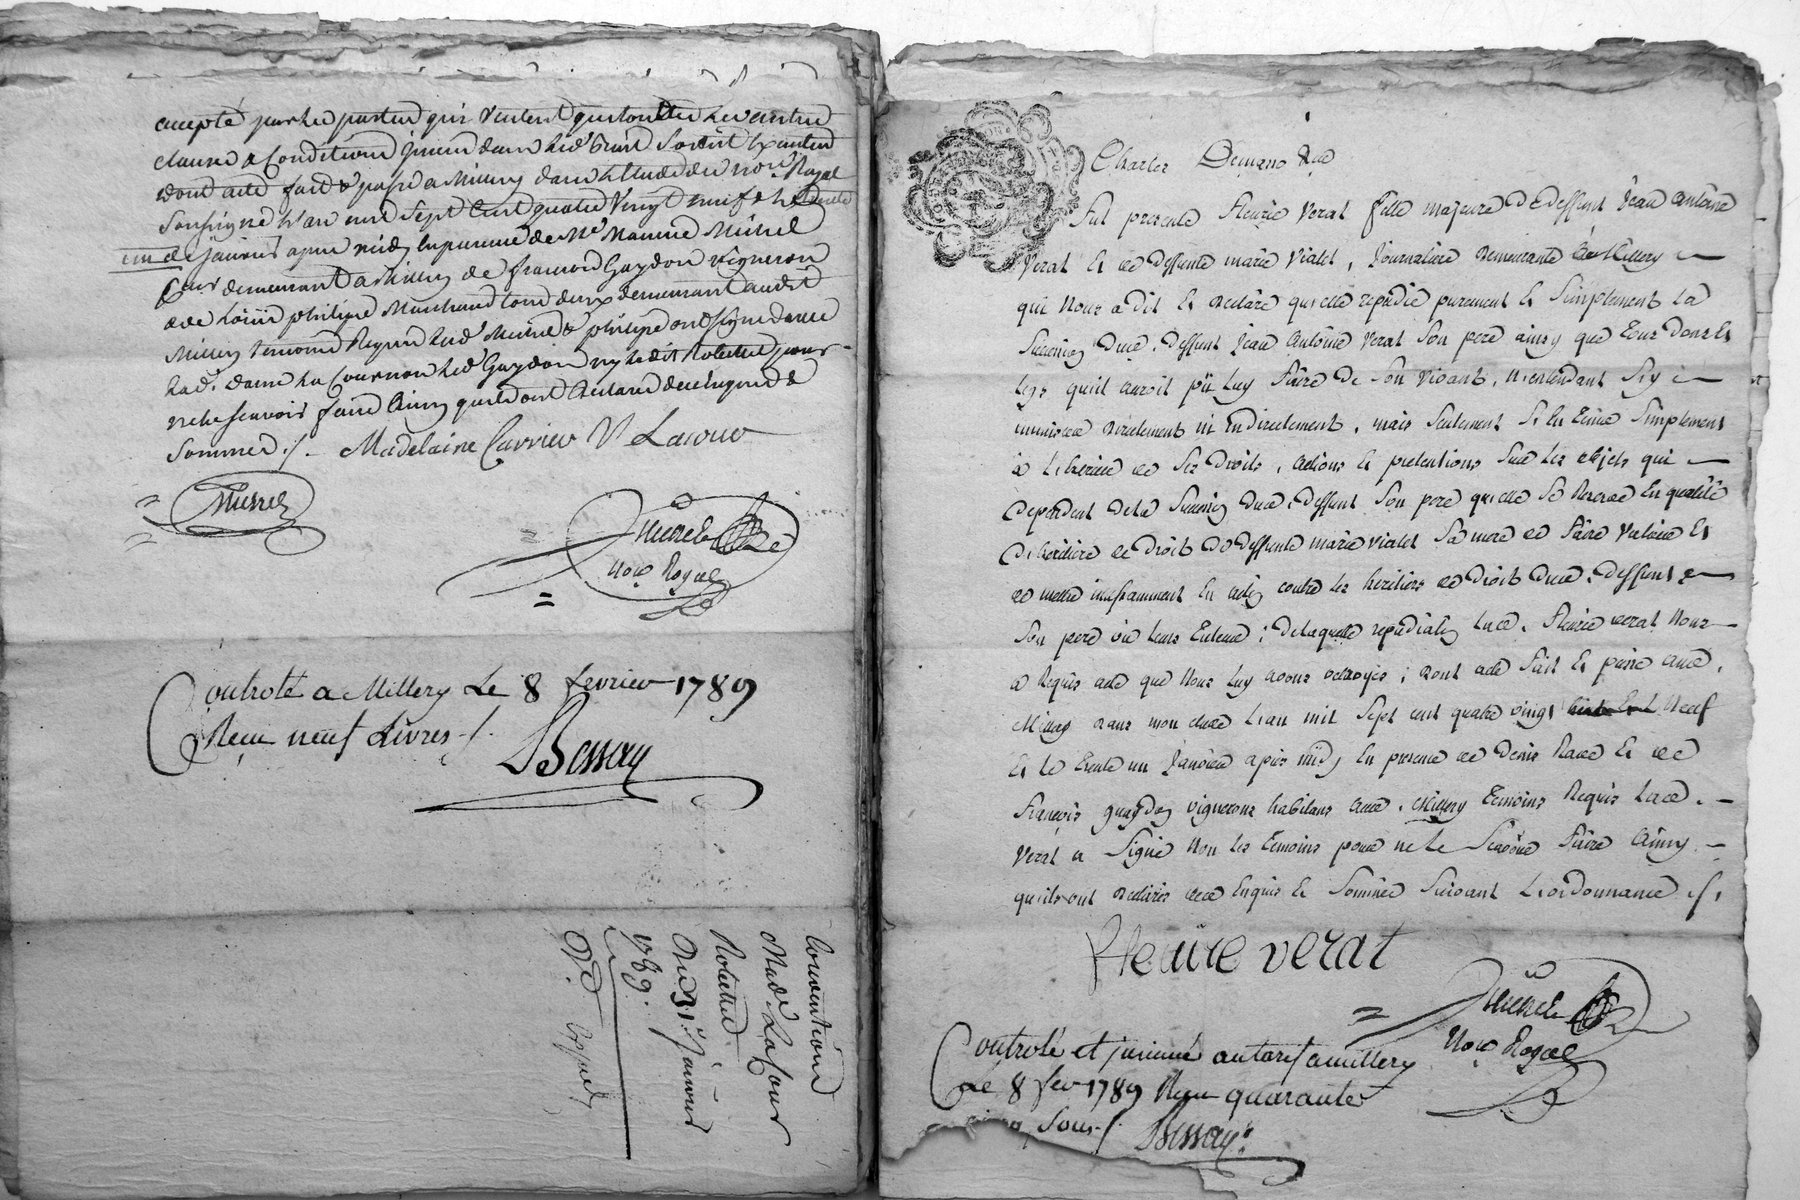 accepté par les parties qui veulent que toutes les entres
clauses & conditions soient executées
dont acte fait & passé a Millery dans l'étude du no.re Royal
soussigné l'an mil sept cent quatre vingt neuf & le trente
un de janvier apres midy en presence de
demeurant a Millery & de françois Gaydon vigneron
& de philipe Marchand tous deux demeurant audit
Millery temoins Requis philipe ont signé avec
lad.e dame La Cour non led.t Gaydon ny led.t pour
ne le sçavoir faire ainsy qu'ils ont déclaré de ce enquis &
sommés ./.
Madelaine Carrier V Lacour
not.re Royal
Controlé a Millery Le 8 fevrier 1789
Reçu neuf Livres ./.
Bessay
Convention
Mad.e La Cour
Du 31.e janvier
1789.
Fut presente Fleurie Verat fille majeure de deffunt Jean Antoine
Verat et de deffunte marie Vialet, Journaliere demeurante à Millery
qui Nous a dit et declaré qu'elle repudie purement et simplement la
succession dud. deffunt Jean Antoine Verat son pere ainsy que tous dons et
legs qu'il auroit pû luy faire de son vivant, n'entendant s'y
immiscer directement ni indirectement, mais seulement s'en tenir simplement
à libérer de ses droits, actions et pretentions sur les objets qui
dependent de la succession dud. deffunt son pere qu'elle se reserve en qualité
d'héritiere de droit de deffunte marie vialet sa mere de faire valoir et
de mettre incessamment en action contre les héritiers de droit dud. deffunt
son pere où leurs tuteurs; de laquelle repudiation lad. Fleurie verat Nous
a Requis acte que Nous luy avons octroyés; dont acte fait et passé aud.
Millery dans mon étude l'an mil sept cent quatre vingt neuf
et le trente un Janvier après midy en presence de denis et de
François gaydon vignerons habitans aud. Millery temoins Requis lad.
Verat a signé Non les temoins pour ne le sçavoir faire ainsy
qu'ils ont declarés de ce enquis et sommés suivant l'ordonnance ./.
fleurie verat
Not.re Royal
Controlé et au tarif a millery
Le 8 fev 1789 Reçu quarante
sous ./. Bessay